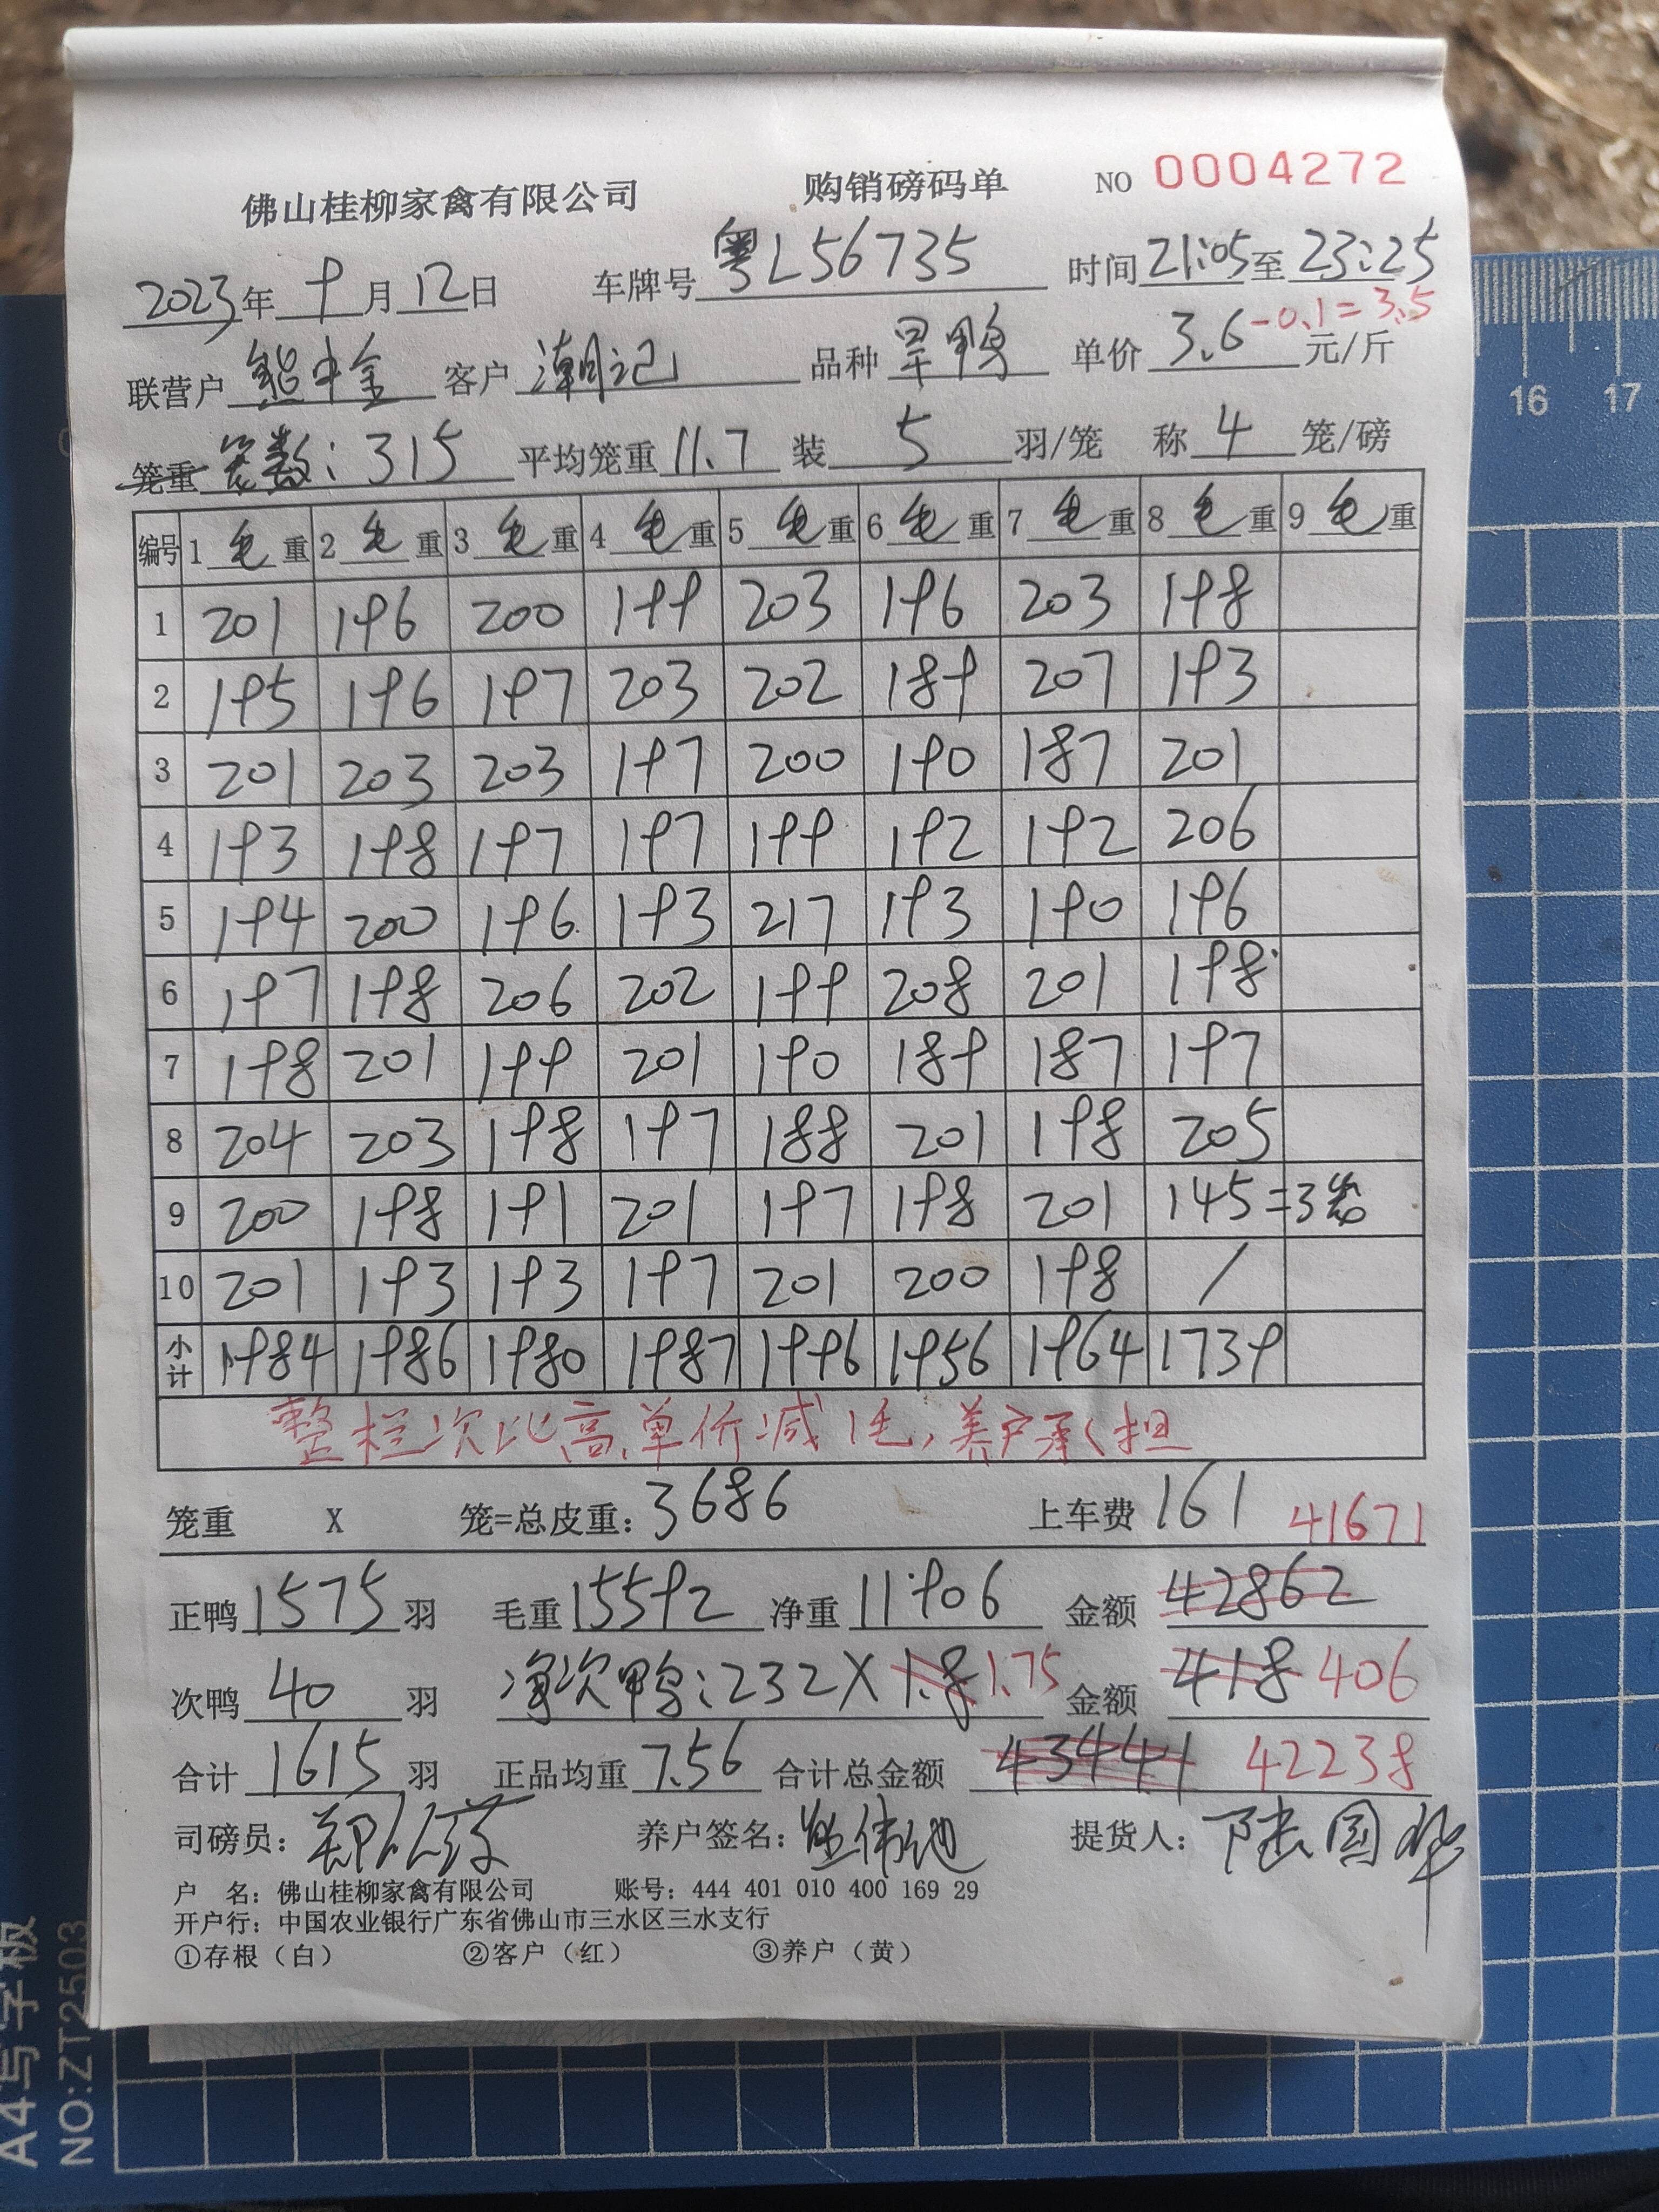 佛山桂柳家禽有限公司 购销磅码单 NO 0004272
2023年 9月 12日 车牌号 粤L56735 时间 21:05 至 23:25
联营户 熊中金 客户 潮记 品种 旱鸭 单价 3.6 -0.1=3.5 元/斤
笼重 笼数:315 平均笼重 11.7 装 5 羽/笼 称 4 笼/磅
编号 1 毛 重 2 毛 重 3 毛 重 4 毛 重 5 毛 重 6 毛 重 7 毛 重 8 毛 重 9 毛 重
1 201 196 200 199 203 196 203 198
2 195 196 197 203 202 189 207 193
3 201 203 203 197 200 190 187 201
4 193 198 197 197 199 192 192 206
5 194 200 196 193 217 193 190 196
6 197 198 206 202 199 208 201 198
7 198 201 199 201 190 189 187 197
8 204 203 198 197 188 201 198 205
9 200 198 191 201 197 198 201 145=3笼
10 201 193 193 197 201 200 198 /
小计 1984 1986 1980 1987 1996 1956 1964 1739
整栏次比高,单价减1毛,养户承担
笼重 X 笼=总皮重: 3686 上车费 161 41671
正鸭 1575 羽 毛重 15592 净重 11906 金额 42862
次鸭 40 羽 净次鸭:232X 1.8 1.75 金额 418 406
合计 1615 羽 正品均重 7.56 合计总金额 43441 42238
司磅员: 养户签名: 提货人: 陆国华
户 名: 佛山桂柳家禽有限公司 账号: 444 401 010 400 169 29
开户行: 中国农业银行广东省佛山市三水区三水支行
①存根（白） ②客户（红） ③养户（黄）
A4写字板
NO:ZT2503
16 17